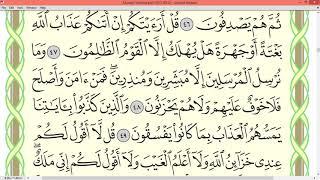 ثُمَّ هُمْ يَصْدِفُونَ ٤٦ قُلْ أَرَءَيْتَكُمْ إِنْ أَتَىٰكُمْ عَذَابُ ٱللَّهِ
بَغْتَةً أَوْ جَهْرَةً هَلْ يُهْلَكُ إِلَّا ٱلْقَوْمُ ٱلظَّٰلِمُونَ ٤٧ وَمَا
نُرْسِلُ ٱلْمُرْسَلِينَ إِلَّا مُبَشِّرِينَ وَمُنذِرِينَ فَمَنْ ءَامَنَ وَأَصْلَحَ
فَلَا خَوْفٌ عَلَيْهِمْ وَلَا هُمْ يَحْزَنُونَ ٤٨ وَٱلَّذِينَ كَذَّبُوا۟ بِـَٔايَٰتِنَا
يَمَسُّهُمُ ٱلْعَذَابُ بِمَا كَانُوا۟ يَفْسُقُونَ ٤٩ قُل لَّآ أَقُولُ لَكُمْ
عِندِى خَزَآئِنُ ٱللَّهِ وَلَآ أَعْلَمُ ٱلْغَيْبَ وَلَآ أَقُولُ لَكُمْ إِنِّى مَلَكٌ